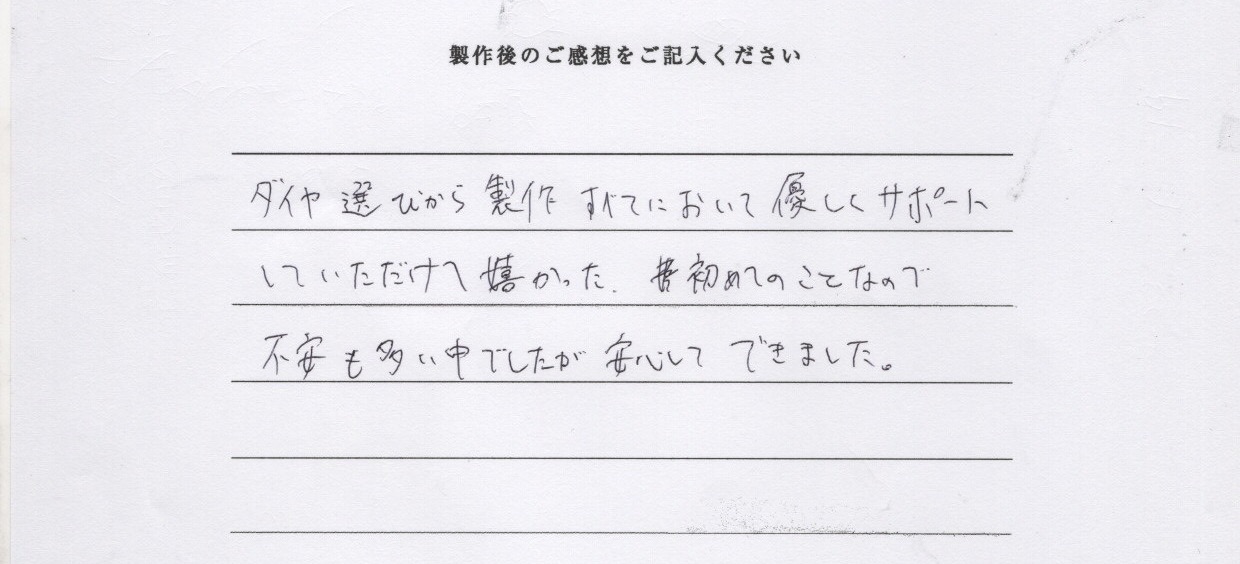 製作後のご感想をご記入ください
ダイヤ選びから製作すべてにおいて優しくサポート
していただけて嬉かった. 初めてのことなので
不安も多い中でしたが安心してできました。